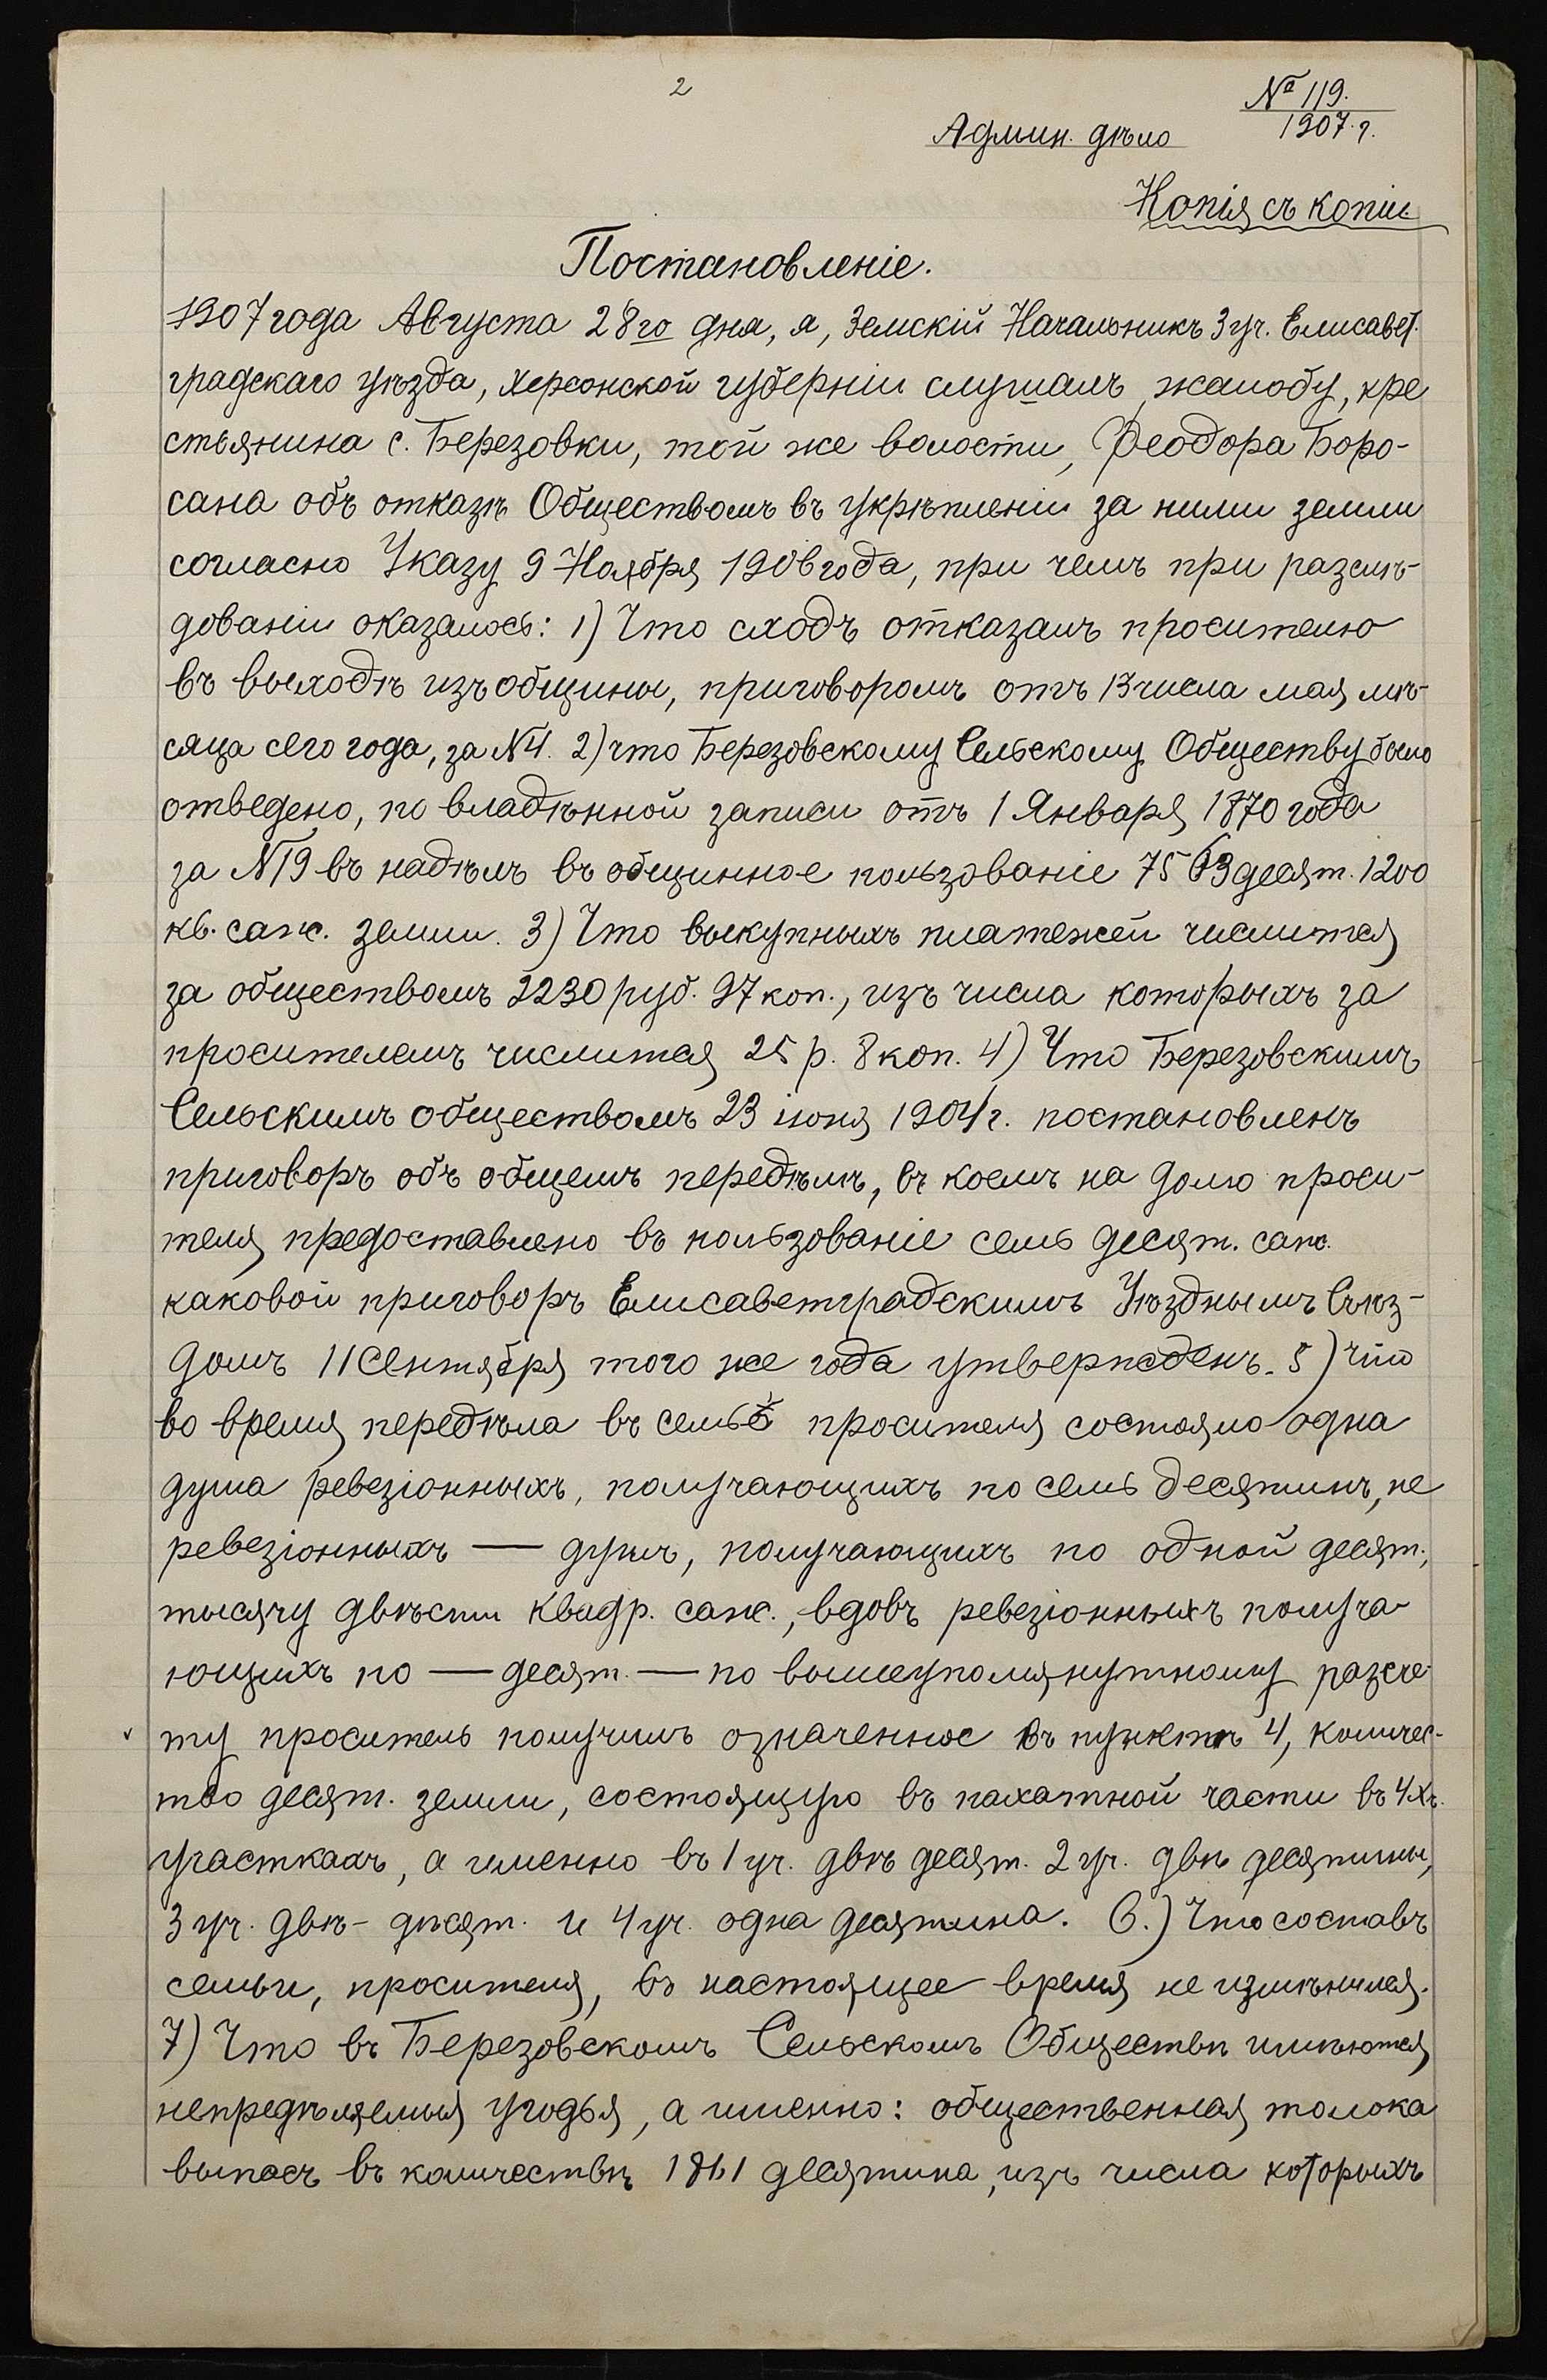 2
№ 119.
1907. г.
Админ. дѣло
Копія съ копіи
Постановленіе.
1907 года Августа 28го дня, я, Земскій Начальникъ 3 уч. Елисавет.
градскаго уѣзда, Херсонской губерніи слушалъ жалобу, кре
стьянина с. Березовки, той же волости, Феодора Боро-
сана объ отказѣ Обществомъ въ укрѣпленіи за ними земли
согласно Указу 9 Ноября 1906 года, при чемъ при разслѣ-
дованіи оказалось: 1) Что сходъ отказалъ просителю
въ выходѣ изъ общины, приговоромъ отъ 13 числа мая мѣ-
сяца сего года, за №4. 2) что Березовскому Сельскому Обществу было
отведено, по владѣнной записи отъ 1 Января 1870 года
за №19 въ надѣлъ въ общинное пользованіе 7563 десят. 1200
кв. саж. земли. 3) Что выкупныхъ платежей числится
за обществомъ 2230 руб. 97 коп., изъ числа которыхъ за
просителемъ числится 25 р. 8 коп. 4) Что Березовскимъ
Сельскимъ обществомъ 23 іюня 1904 г. постановленъ
приговоръ объ общемъ передѣлѣ, въ коемъ на долю проси-
теля предоставлено въ пользованіе семь десят. саж.
каковой приговоръ Елисаветградскимъ Уѣзднымъ Съѣз-
домъ 11 Сентября того же года утвержденъ. 5) что
во время передѣла въ семьѣ просителя состояло одна
душа ревезіонныхъ, получающихъ по семь десятинъ, не
ревезіонныхъ — душъ, получающихъ по одной десят.,
тысячу двѣсти квадр. саж., вдовъ ревезіонныхъ получа-
ющихъ по — десят. — по вышеупомянутному разсче-
ту проситель получилъ означенное въ пунктѣ 4, количес-
тво десят. земли, состоящую въ пахатной части въ 4хъ
участкахъ, а именно въ 1 уч. двѣ десят. 2 уч. двѣ десятины,
3 уч. двѣ- дѣсят. и 4 уч. одна десятина. 6.) Что составъ
семьи, просителя, въ настоящее время не измѣнился.
7) Что въ Березовскомъ Сельскомъ Обществѣ имѣются
непредѣляемыя угодья, а именно: общественная толока
выпасъ въ количествѣ 1861 десятина, изъ числа которыхъ